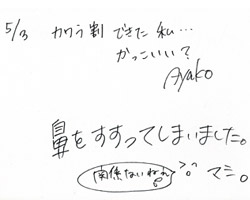 5/3 カワラ割できた私…
かっこいい？
Ayako
鼻をすすってしまいました。
関係ないねん マミ。